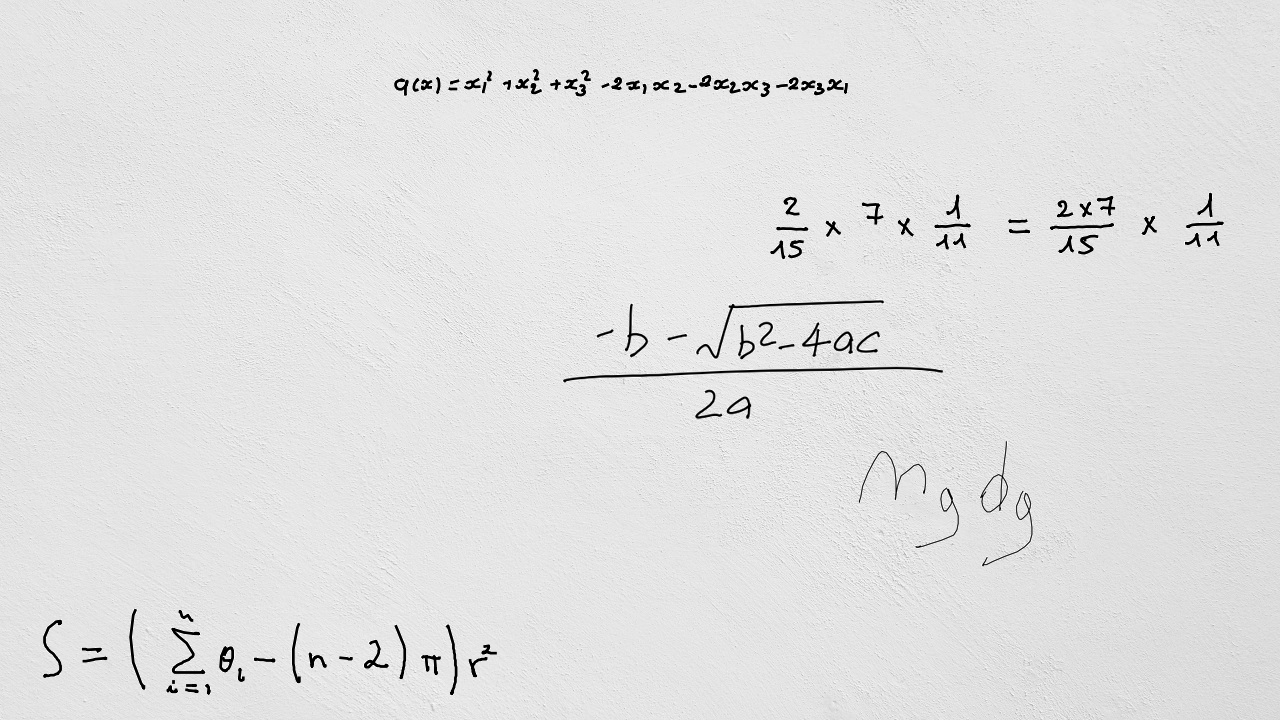 q(x) = x₁² + x₂² + x₃² - 2x₁x₂ - 2x₂x₃ - 2x₃x₁
2/15 × 7 × 1/11 = (2×7)/15 × 1/11
(-b - √(b² - 4ac))/(2a)
m_g d_g
S = (∑_{i=1}^{n} θ_i - (n - 2)π) r²